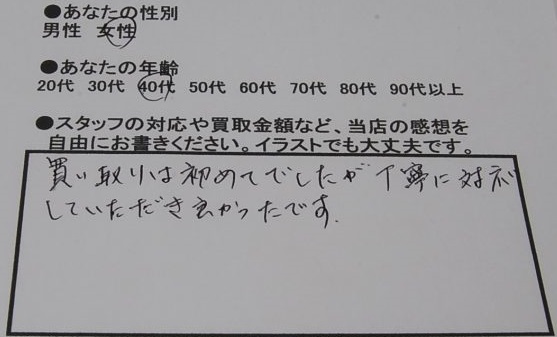 ●あなたの性別
男性 女性
●あなたの年齢
20代 30代 40代 50代 60代 70代 80代 90代以上
●スタッフの対応や買取金額など、当店の感想を
自由にお書きください。イラストでも大丈夫です。
買い取りは初めてでしたが丁寧に対応
していただき良かったです。